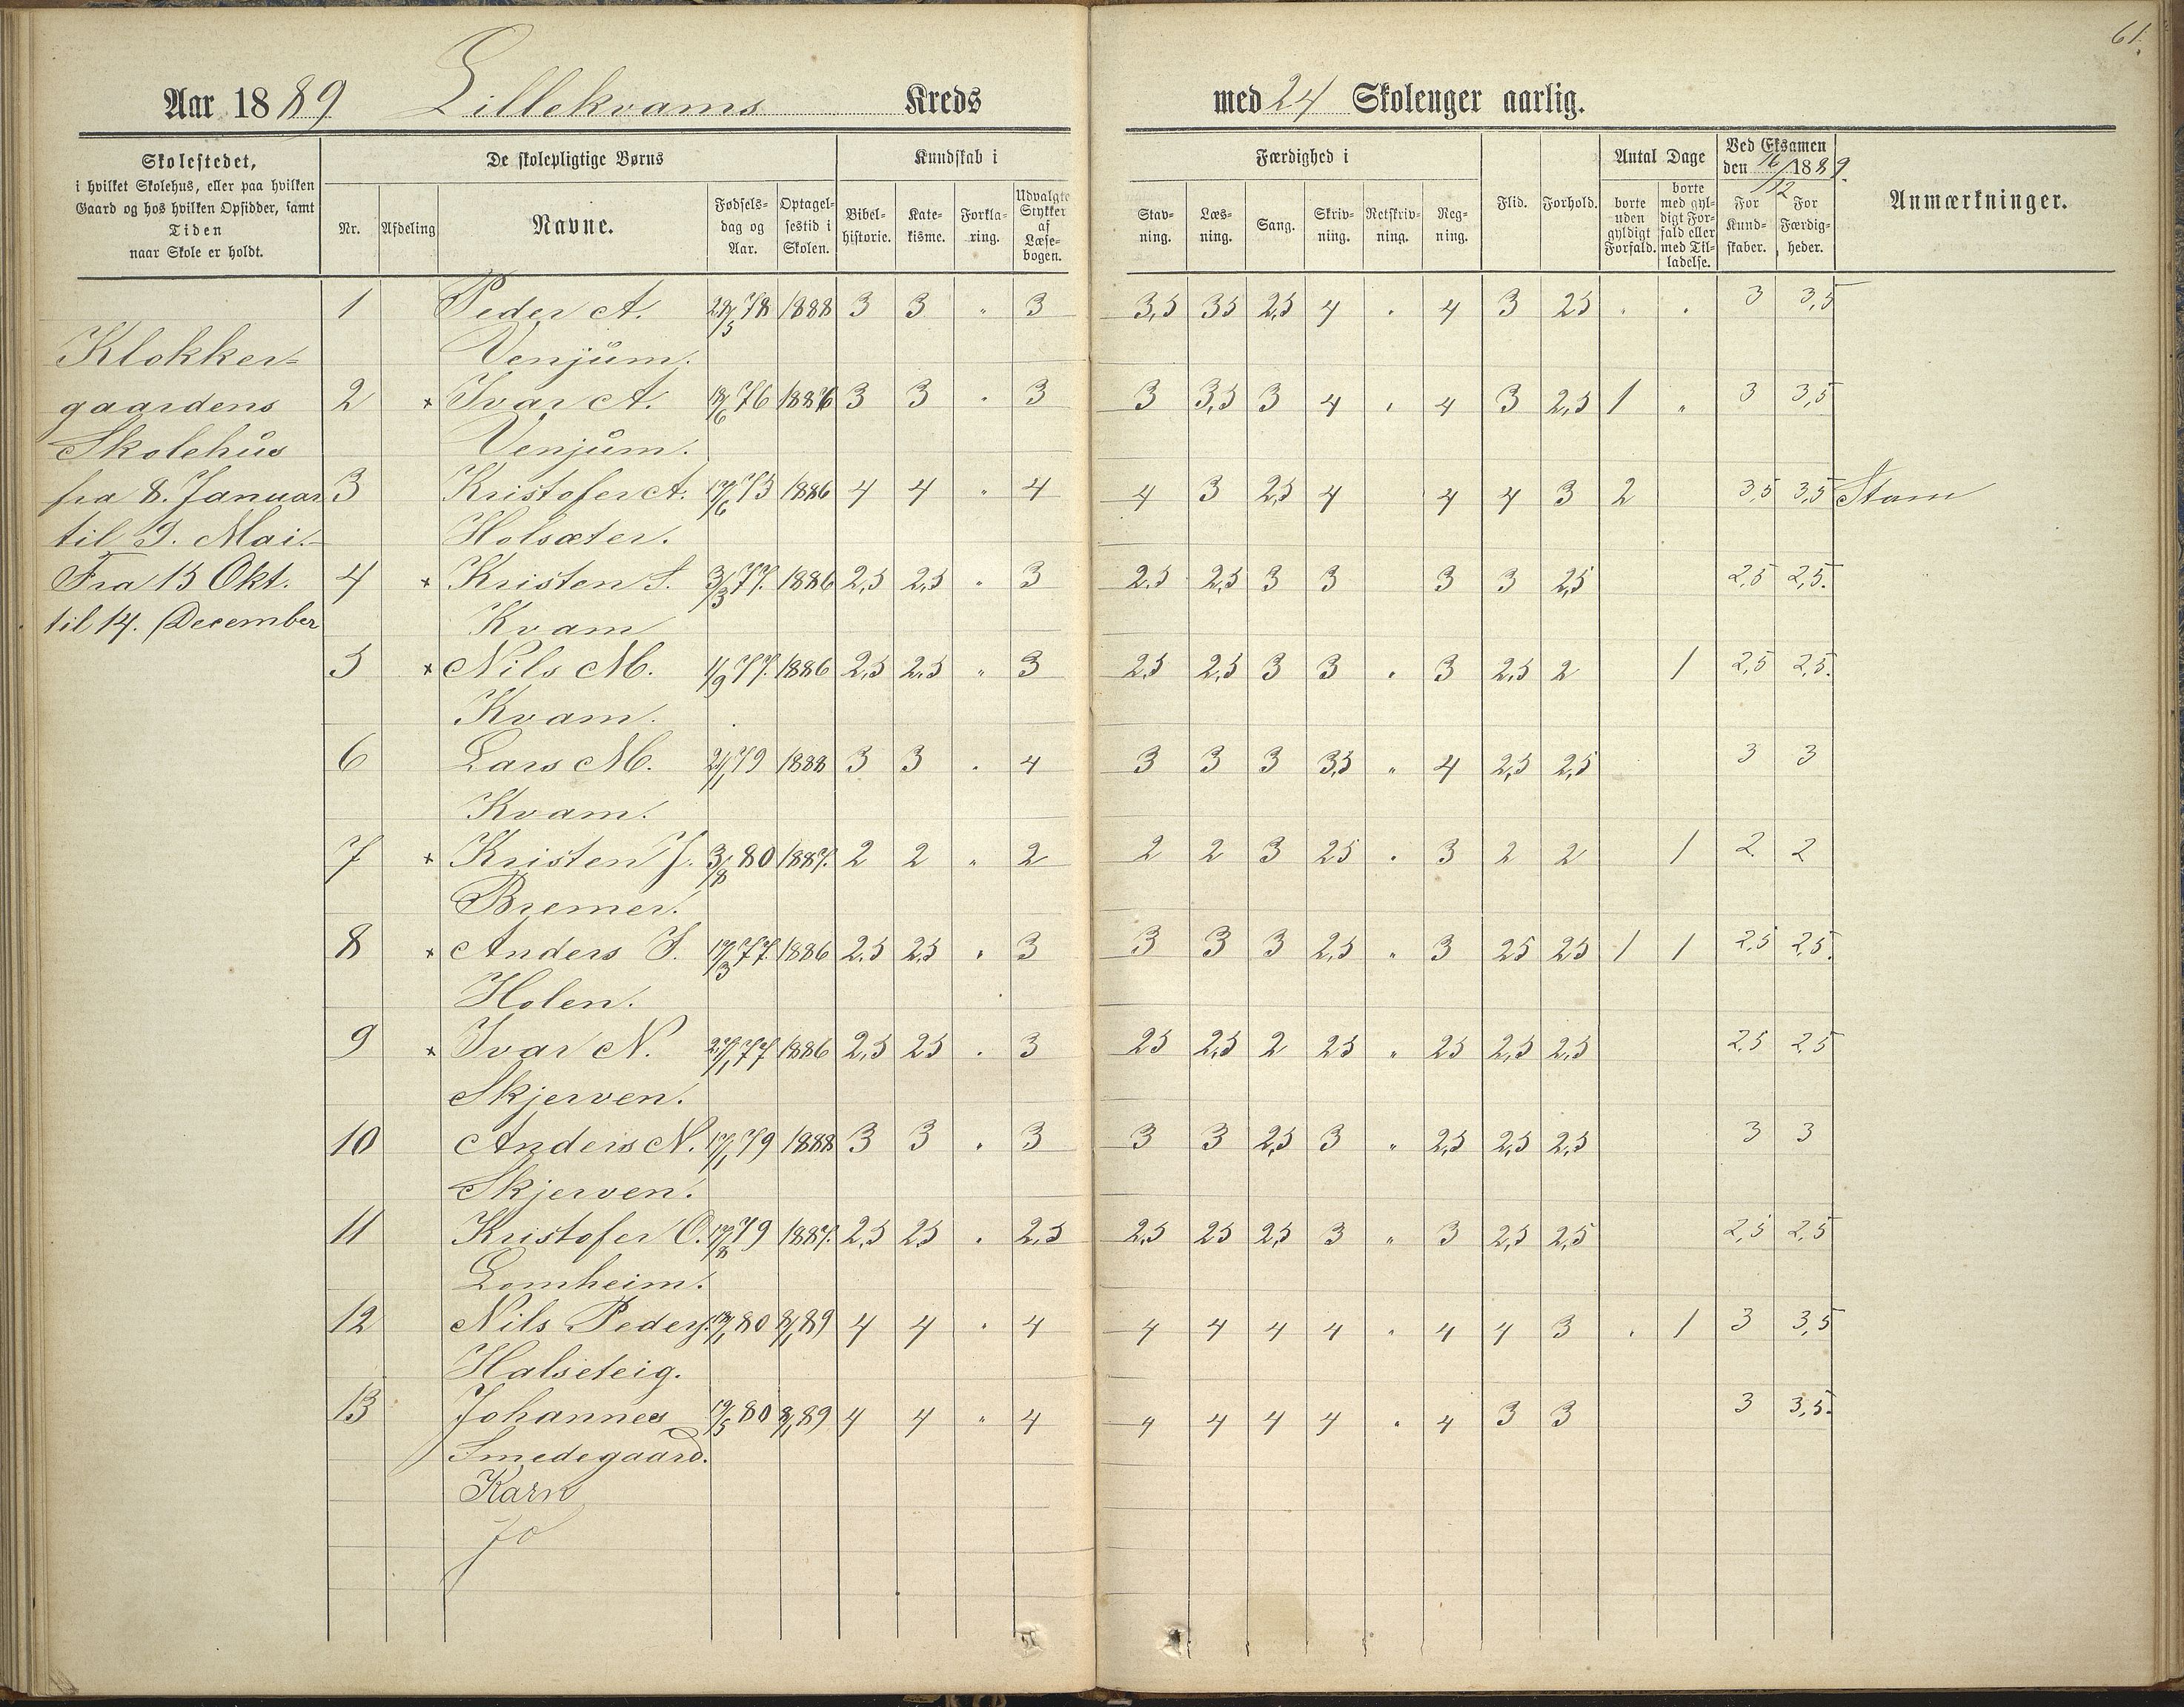 61.
Aar 1889 Lillekvams Kreds med 24 Skoleuger aarlig.
Skolestedet, i hvilket Skolehus, eller paa hvilken Gaard og hos hvilken Opsidder, samt Tiden naar Skole er holdt.
De skolepligtige Børns
Nr. Afdeling Navne. Fødselsdag og Aar. Optagelsestid i Skolen.
Kundskab i
Bibelhistorie. Katekisme. Forklaring. Udvalgte Stykker af Læsebogen.
Færdighed i
Stavning. Læsning. Sang. Skrivning. Retskrivning. Regning.
Flid. Forhold.
Antal Dage
borte uden gyldigt Forfald. borte med gyldigt Forfald eller med Tilladelse.
Ved Eksamen den 16/12 1889.
For Kundskaber. For Færdigheder.
Anmærkninger.
Klokker-
gaardens
Skolehus
fra 8. Januar
til 9. Mai.
Fra 15 Okt.
til 14. December
1 Peder A. 28/5 78 1888 3 3 " 3 3,5 35 2,5 4 " 4 3 25 " " 3 3,5
Venjum.
2 x Ivar A. 18/6 76 1886 3 3 " 3 3 3,5 3 4 " 4 3 2,5 1 " 3 3,5
Venjum.
3 Kristofer A. 17/6 75 1886 4 4 " 4 4 3 2,5 4 4 4 3 2 3,5 3,5 Stam
Holsæter.
4 x Kristen S. 3/3 77. 1886 2,5 2,5 " 3 2.5 2,5 3 3 3 3 2,5 2,5 2,5.
Kvam
5 x Nils M. 1/9 77. 1886 2,5 2,5 " 3 2,5 2,5 3 3 " 3 2,5 2 1 2,5 2,5.
Kvam.
6 Lars M. 79 1888 3 3 " 4 3 3 3 3,5 " 4 2,5 2,5 3 3
Kvam.
7 x Kristen J. 3/8 80 1887. 2 2 " 2 2 2 3 25 " 3 2 2 1 2 2
Bremer.
8 x Anders S. 19/3 77. 1886 2,5 2,5 " 3 3 3 3 2,5 " 3 25 25 1 1 2,5 2,5.
Holen.
9 x Ivar N. 27/1 77 1886 2,5 25 " 3 25 2,5 2 25 " 25 2,5 2,5 2,5 2,5
Skjerven.
10 Anders N. 17/1 79 1888 3 3 " 3 3 3 2,5 3 " 2,5 2,5 2,5 3 3
Skjerven.
11 Kristofer O. 17/8 79 1887. 2,5 2,5 " 2,5 2,5 25 2,5 3 " 3 2,5 2,5 2,5 2,5
Lomheim.
12 Nils Peders. 80 8/1 89 4 4 " 4 4 4 4 4 " 4 4 3 " 1 3 3,5
Halseteig.
13 Johannes 19/5 80 8/1 89 4 4 " 4 4 4 4 4 " 4 3 3 3 3,5.
Smedegaard.
Karn
Jo